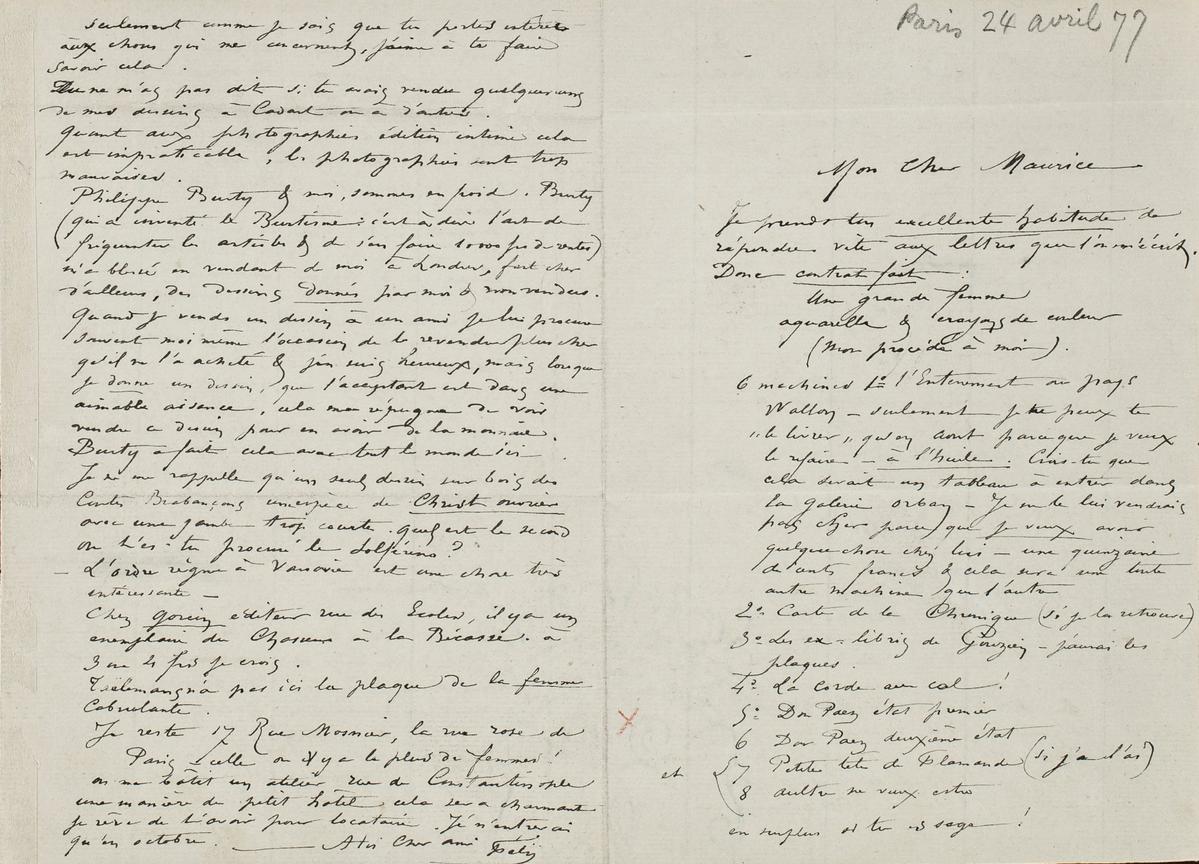 Paris 24 avril 77
Mon Cher Maurice
Je prends ton excellente habitude de
répondre vite aux lettres que l'on m'écrit.
Donc contrat fait :
Une grande femme
aquarelle & crayons de couleur
(Mon procédé à moi).
6 machines 1º l'Enterrement au pays
Wallon – seulement je ne peux te
"le livrer" qu'en août parceque je veux
le refaire – à l'huile. Crois-tu que
cela serait un tableau à entrer dans
la galerie Orban – Je ne le lui vendrais
pas cher parce que je veux avoir
quelque chose chez lui – une quinzaine
de cents francs & cela sera une toute
autre machine que l'autre
2º Carte de la Chronique (si je la retrouve)
3º Les ex-libris de Gouzien – j'aurai les
plaques.
4º La Corde au col !
5º Don Paez état premier
6 Don Paez deuxième état
et 7 Petite tete de Flamande (si j'ai l'ai)
8 aultre ne veux estre
en surplus si tu es sage !
seulement comme je sais que tu portes intérêt
aux choses qui me concernent, j'aime à te faire
savoir cela.
Tu ne m'as pas dit si tu avais vendu quelques uns
de mes dessins à Cadart ou à d'autres.
Quant aux photographies édition intime cela
est impraticable, les photographies sont trop
mauvaises.
Philippe Burty & moi, sommes en froid. Burty
(qui a inventé le Burtisme : c'est à dire l'art de
fréquenter les artistes & de s'en faire 10000 frs de rentes)
m'a blessé en vendant de moi à Londres, fort cher
d'ailleurs, des dessins donnés par moi & non vendus.
Quand je vends un dessin à un ami je lui procure
souvent moi même l'occasion de le revendre plus cher
qu'il ne l'a acheté & j'en suis heureux, mais lorsque
je donne un dessin, que l'acceptant est dans une
aimable aisance, cela me répugne de voir
vendre ce dessin pour en avoir de la monnaie.
Burty a fait cela avec tout le monde ici.
Je ne me rappelle qu'un seul dessin sur bois des
Contes Brabançons une espèce de Christ ouvrier
avec une jambe trop courte. quel est le second
où t'es-tu procuré le Solferino ?
– L'ordre règne à Varsovie est une chose très
intéressante –
Chez Gonin éditeur rue des Ecoles, il y a un
exemplaire du Chasseur à la Bécasse. à
3 ou 4 frs je crois.
n'a pas ici la plaque de la femme
Cabrulante.
Je reste 17 Rue Mosnier, la rue rose de
Paris – celle où il y a le plus de femmes !
on me bâtit un atelier rue de Constantinople
une manière de petit hôtel cela sera charmant
je rêve de t'avoir pour locataire. Je n'entrerai
qu'en octobre. ——— A toi Cher ami Fély